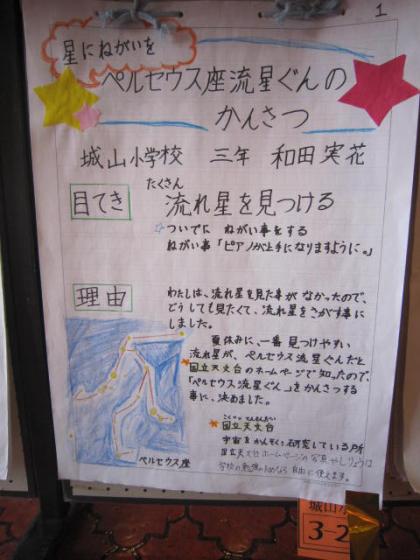 1
星にねがいを
ペルセウス座流星ぐんの
かんさつ
城山小学校 三年 和田実花
目てき
たくさん
流れ星を見つける
☆ついでに ねがい事をする
ねがい事「ピアノが上手になりますように。」
理由
わたしは、流れ星を見た事がなかったので、
どうしても見たくて、流れ星をさがす事に
しました。
夏休みに、一番見つけやすい
流れ星が、ペルセウス流星ぐんだと
国立天文台のホームページで知ったので、
「ペルセウス流星ぐん」をかんさつする
事に、決めました。
こくりつてんもんだい
国立天文台
宇宙をかんそく・研究している所
国立天文台ホームページの写真やしりょうは
学校の勉強のためなら自由に使えます。
ペルセウス座
城山小
3-2